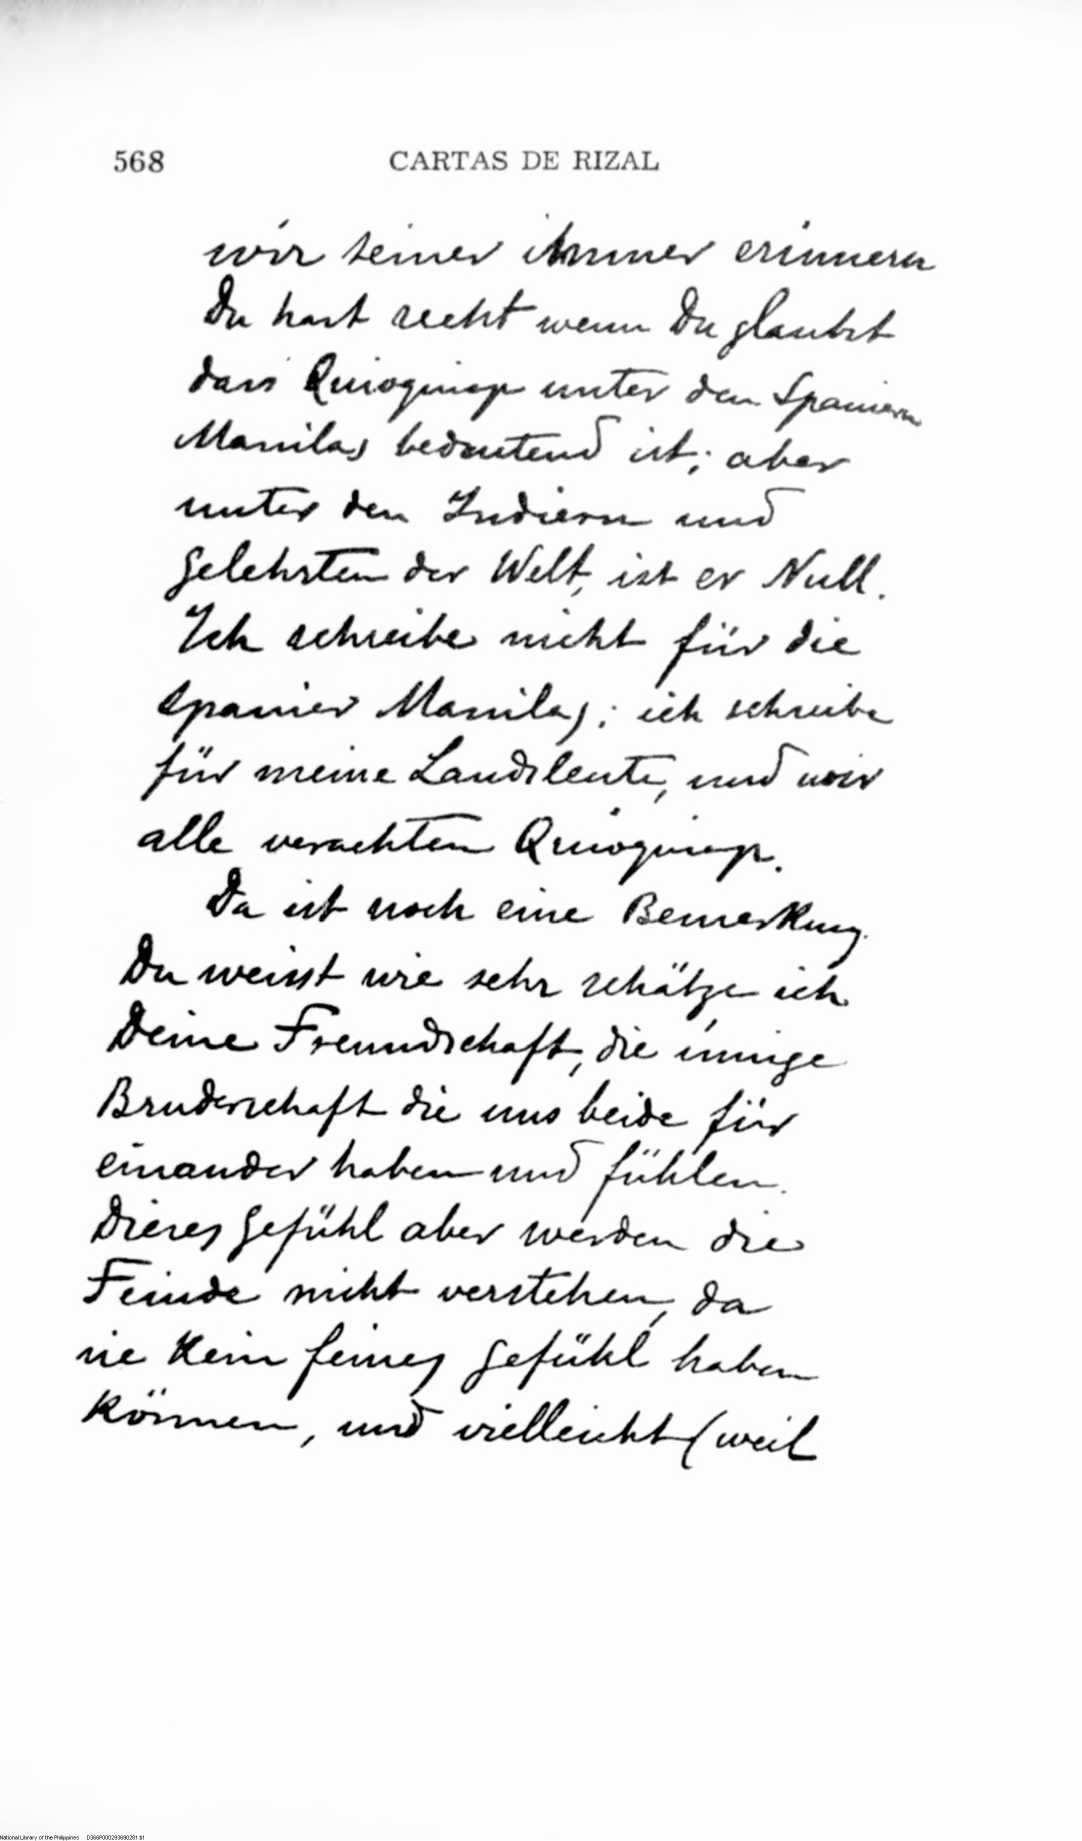 568 CARTAS DE RIZAL
wir seiner immer erinnern
Du hast recht wenn Du glaubst
dass Quioquiap unter den Spaniern
Manilas bedeutend ist; aber
unter den Indiern und
gelehrten der Welt, ist er Null.
Ich schreibe nicht für die
Spanier Manilas; ich schreibe
für meine Landsleute, und wir
alle verachten Quioquiap.
Da ist noch eine Bemerkung.
Du weisst wie sehr schätze ich
Deine Freundschaft, die innige
Bruderschaft die uns beide für
einander haben und fühlen.
Dieses Gefühl aber werden die
Feinde nicht verstehen, da
sie kein feines Gefühl haben
können, und vielleicht (weil
National Library of the Philippines